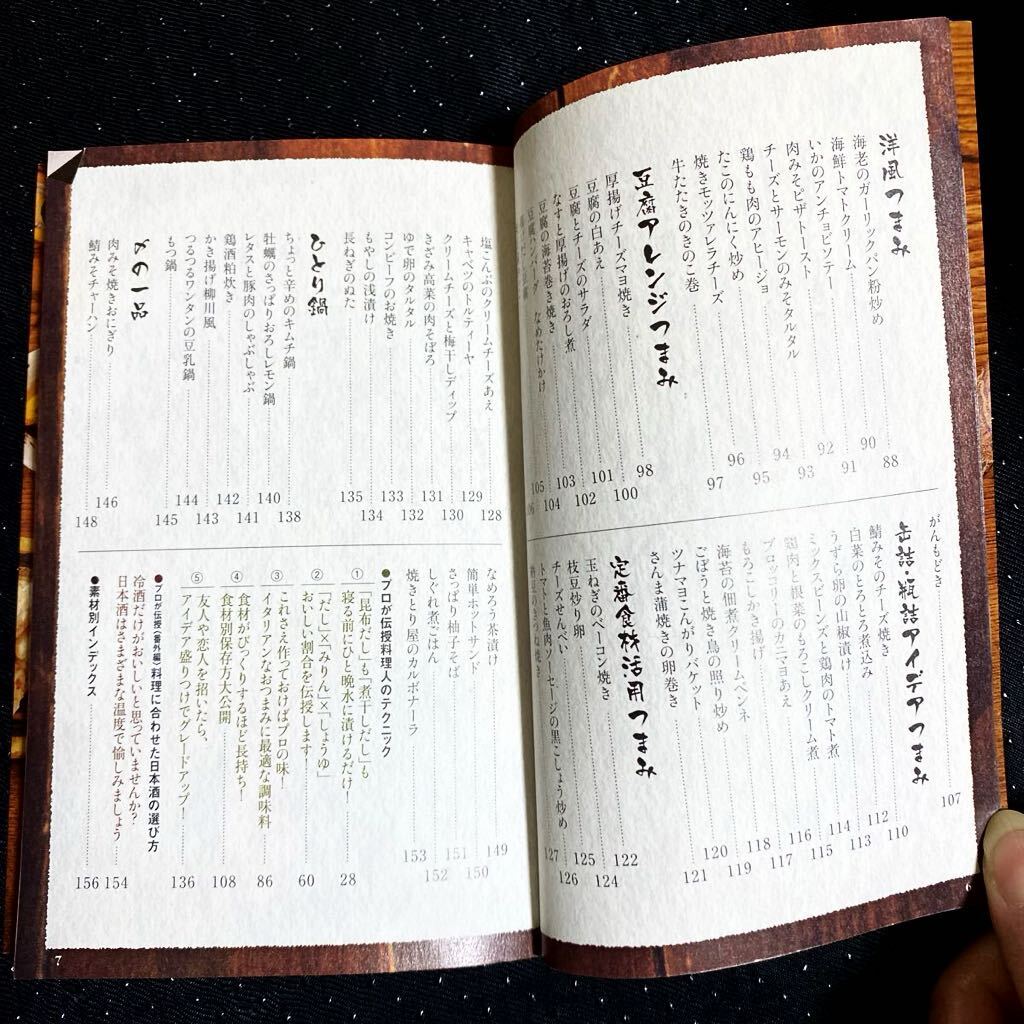 洋風つまみ
海老のガーリックパン粉炒め 88
海鮮トマトクリーム 90
いかのアンチョビソテー 91
肉みそピザトースト 92
チーズとサーモンのみそタルタル 93
鶏もも肉のアヒージョ 94
たこのにんにく炒め 95
焼きモッツァレラチーズ 96
牛たたきのきのこ巻 97
豆腐アレンジつまみ
厚揚げチーズマヨ焼き 98
豆腐の白あえ 100
豆腐とチーズのサラダ 101
なすと厚揚げのおろし煮 102
豆腐の海苔巻き焼き 103
なめたけかけ 104
105
がんもどき 107
缶詰・瓶詰アイデアつまみ
鯖みそのチーズ焼き 110
白菜のとろとろ煮込み 112
うずら卵の山椒漬け 113
ミックスビーンズと鶏肉のトマト煮 114
鶏肉と根菜のもろこしクリーム煮 115
ブロッコリーのカニマヨあえ 116
もろこしかき揚げ 117
海苔の佃煮クリームペンネ 118
ごぼうと焼き鳥の照り炒め 119
ツナマヨこんがりバケット 120
さんま蒲焼きの卵巻き 121
定番食材活用つまみ
玉ねぎのベーコン焼き 122
枝豆炒り卵 124
チーズせんべい 125
トマトと魚肉ソーセージの黒こしょう炒め 126
127
塩こんぶのクリームチーズあえ 128
キャベツのトルティーヤ 129
クリームチーズと梅干しディップ 130
きざみ高菜の肉そぼろ 131
ゆで卵のタルタル 132
コンビーフのお焼き 133
もやしの浅漬け 134
長ねぎのぬた 135
ひとり鍋
ちょっと辛めのキムチ鍋 138
牡蠣のさっぱりおろしレモン鍋 140
レタスと豚肉のしゃぶしゃぶ 141
鶏酒粕炊き 142
かき揚げ柳川風 143
つるつるワンタンの豆乳鍋 144
もつ鍋 145
〆の一品
肉みそ焼きおにぎり 146
鯖みそチャーハン 148
なめろう茶漬け 149
簡単ホットサンド 150
さっぱり柚子そば 151
しぐれ煮ごはん 152
焼きとり屋のカルボナーラ 153
●プロが伝授料理人のテクニック
①「昆布だし」も「煮干しだし」も
寝る前にひと晩水に漬けるだけ! 28
②「だし」×「みりん」×「しょうゆ」
おいしい割合を伝授します! 60
③これさえ作っておけばプロの味!
イタリアンなおつまみに最適な調味料 86
④食材がびっくりするほど長持ち!
食材別保存方大公開 108
⑤友人や恋人を招いたら、
アイデア盛りつけでグレードアップ! 136
●プロが伝授(番外編)料理に合わせた日本酒の選び方
冷酒だけがおいしいと思っていませんか?
日本酒はさまざまな温度で愉しみましょう 154
●素材別インデックス 156
7